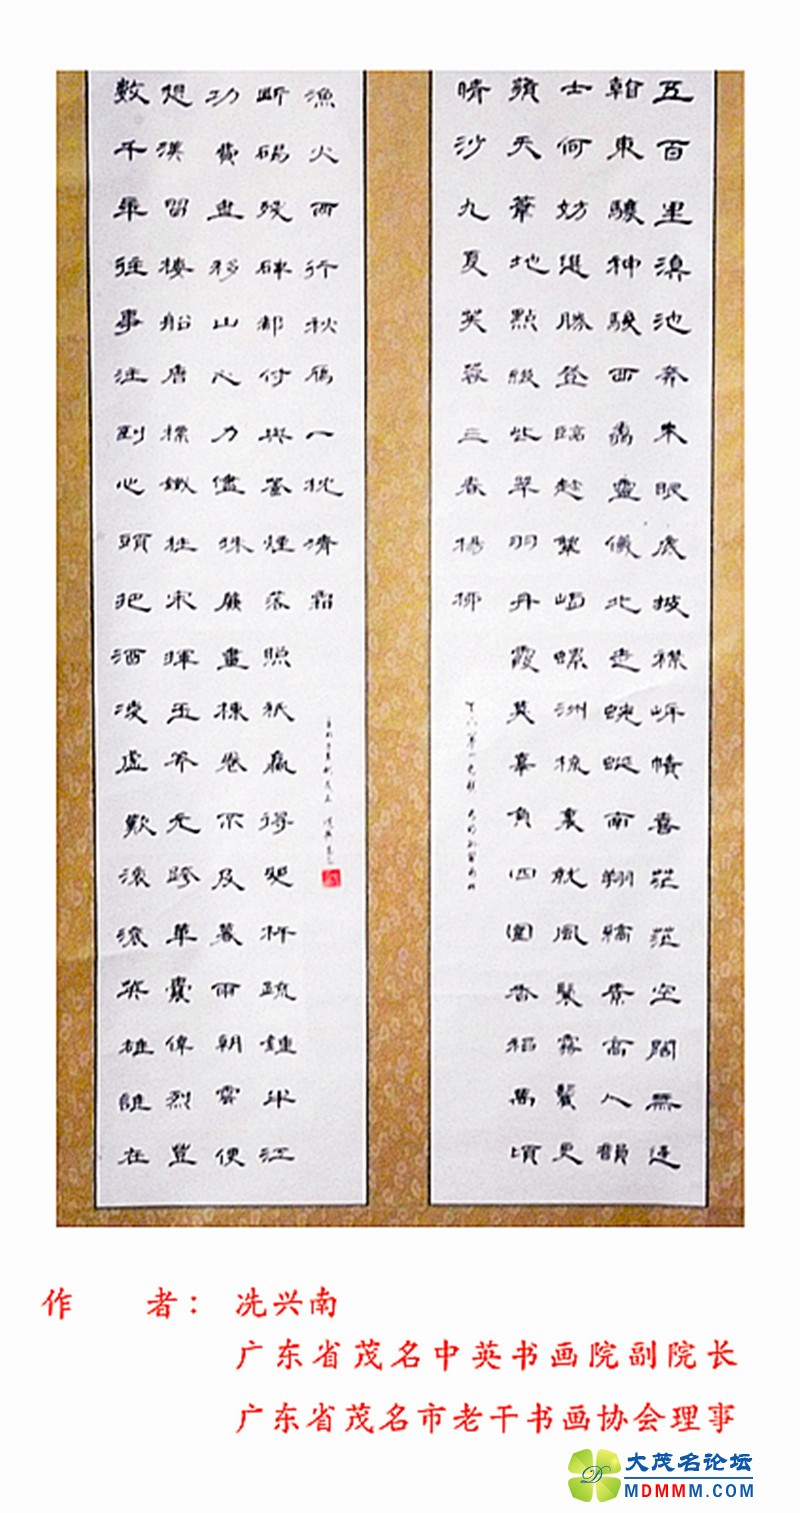 五百里滇池奔來眼底披襟岸幘喜茫茫空闊無邊
看東驤神駿西翥靈儀北走蜿蜒南翔縞素高人韻
士何妨選勝登臨趁蟹嶼螺洲梳裹就風鬟霧鬢更
蘋天葦地點綴些翠羽丹霞莫辜負四圍香稻萬頃
晴沙九夏芙蓉三春楊柳
天下第一長聯
數千年往事注到心頭把酒凌虛歎滾滾英雄誰在
想漢習樓船唐標鐵柱宋揮玉斧元跨革囊偉烈豐
功費盡移山心力儘珠簾畫棟卷不及暮雨朝雲便
斷碣殘碑都付與蒼煙落照祇贏得幾杵疏鐘半江
漁火兩行秋雁一枕清霜
作 者：冼兴南
广东省茂名中英书画院副院长
广东省茂名市老干书画协会理事
大茂名论坛
MDMMM.COM